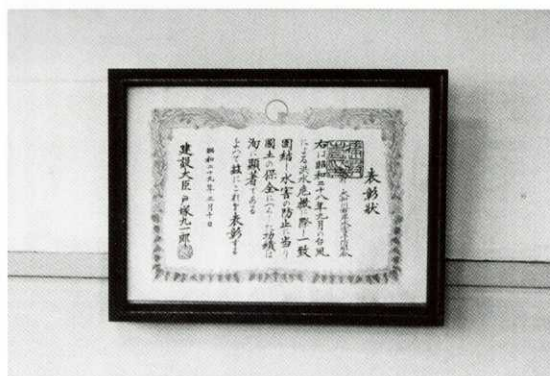 表彰状
右は昭和二十八年九月の台風
による洪水危機に際し一致
団結水害の防止に当り
國土の保全に功績は
洵に顕著である
よつて茲にこれを表彰する
昭和二十九年三月十日
建設大臣 戸塚九一郎